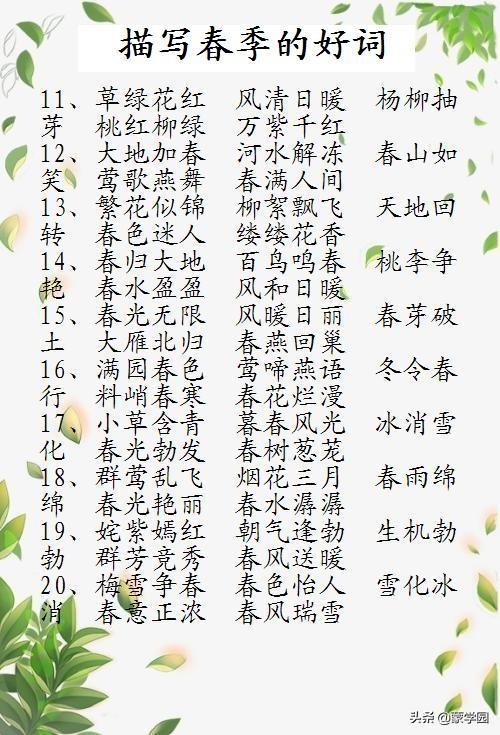 描写春季的好词
11、草绿花红 风清日暖 杨柳抽
芽 桃红柳绿 万紫千红
12、大地加春 河水解冻 春山如
笑 莺歌燕舞 春满人间
13、繁花似锦 柳絮飘飞 天地回
转 春色迷人 缕缕花香
14、春归大地 百鸟鸣春 桃李争
艳 春水盈盈 风和日暖
15、春光无限 风暖日丽 春芽破
土 大雁北归 春燕回巢
16、满园春色 莺啼燕语 冬令春
行 料峭春寒 春花烂漫
17、小草含青 暮春风光 冰消雪
化 春光勃发 春树葱茏
18、群莺乱飞 烟花三月 春雨绵
绵 春光艳丽 春水潺潺
19、姹紫嫣红 朝气逢勃 生机勃
勃 群芳竞秀 春风送暖
20、梅雪争春 春色怡人 雪化冰
消 春意正浓 春风瑞雪
头条 @蒙学园